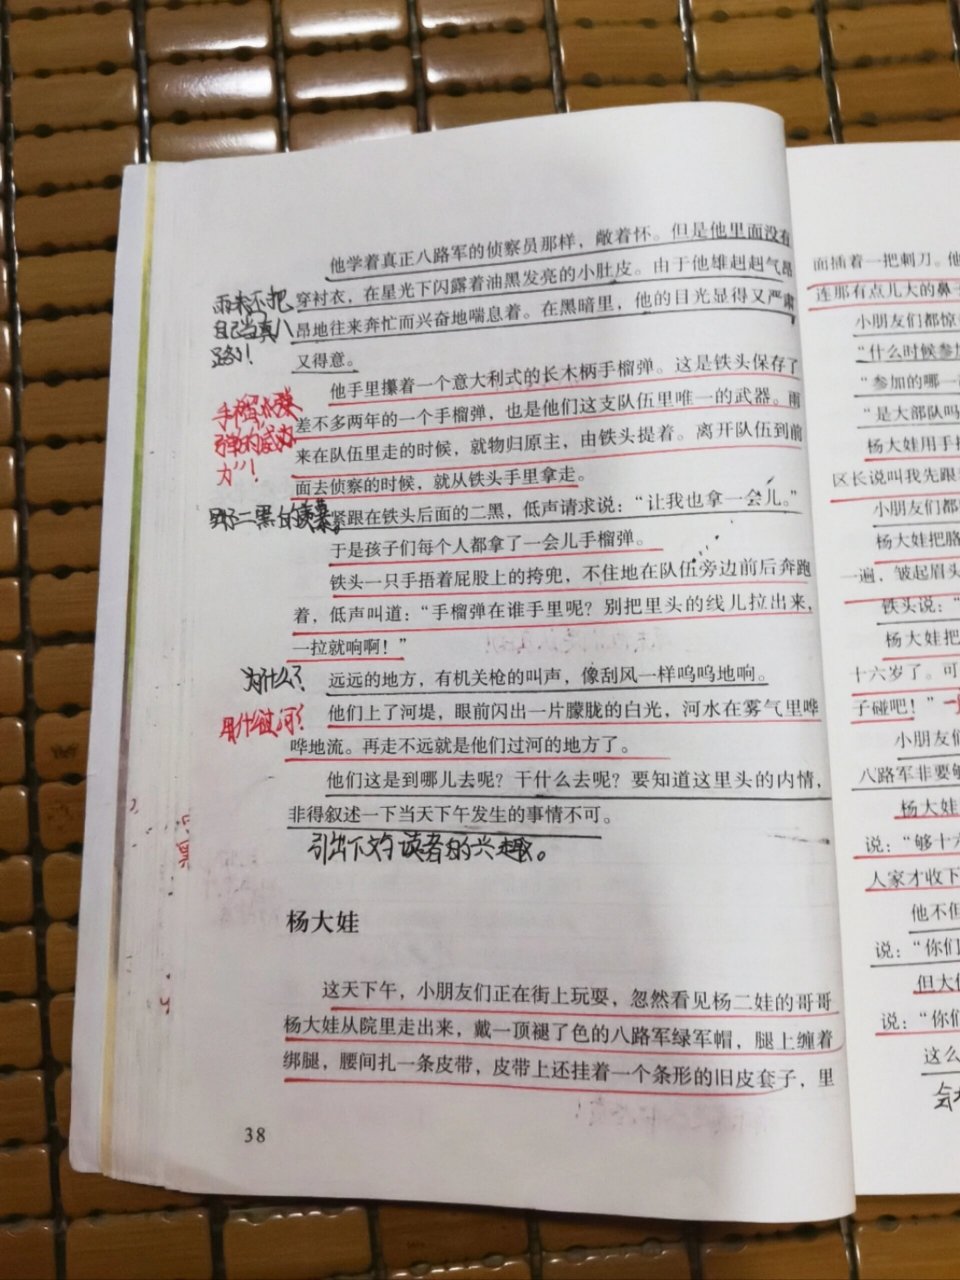 他学着真正八路军的侦察员那样，敞着怀。但是他里面没有
穿衬衣，在星光下闪露着油黑发亮的小肚皮。由于他雄赳赳气昂
昂地往来奔忙而兴奋地喘息着。在黑暗里，他的目光显得又严肃
又得意。
雨来不把
自己当真八
路！
他手里攥着一个意大利式的长木柄手榴弹。这是铁头保存了
差不多两年的一个手榴弹，也是他们这支队伍里唯一的武器。雨
来在队伍里走的时候，就物归原主，由铁头提着。离开队伍到前
面去侦察的时候，就从铁头手里拿走。
紧跟在铁头后面的二黑，低声请求说：“让我也拿一会儿。”
于是孩子们每个人都拿了一会儿手榴弹。
铁头一只手捂着屁股上的挎兜，不住地在队伍旁边前后奔跑
着，低声叫道：“手榴弹在谁手里呢？别把里头的线儿拉出来，
一拉就响啊！”
为什么？
远远的地方，有机关枪的叫声，像刮风一样呜呜地响。
用什么过河？
他们上了河堤，眼前闪出一片朦胧的白光，河水在雾气里哗
哗地流。再走不远就是他们过河的地方了。
他们这是到哪儿去呢？干什么去呢？要知道这里头的内情，
非得叙述一下当天下午发生的事情不可。
引出下文勾读者的兴趣。
杨大娃
这天下午，小朋友们正在街上玩耍，忽然看见杨二娃的哥哥
杨大娃从院里走出来，戴一顶褪了色的八路军绿军帽，腿上缠着
绑腿，腰间扎一条皮带，皮带上还挂着一个条形的旧皮套子，里
38
面插着一把刺刀。他
连那有点儿大的鼻子
小朋友们都惊
“什么时候参加
“参加的哪一
“是大部队吗
杨大娃用手指
区长说叫我先跟
小朋友们都
杨大娃把胳
一遍，皱起眉头
铁头说：“
杨大娃把
十六岁了。可
子碰吧！”
小朋友们
八路军非要够
杨大娃
说：“够十六
人家才收下
他不但
说：“你们
但大
说：“你们
这么